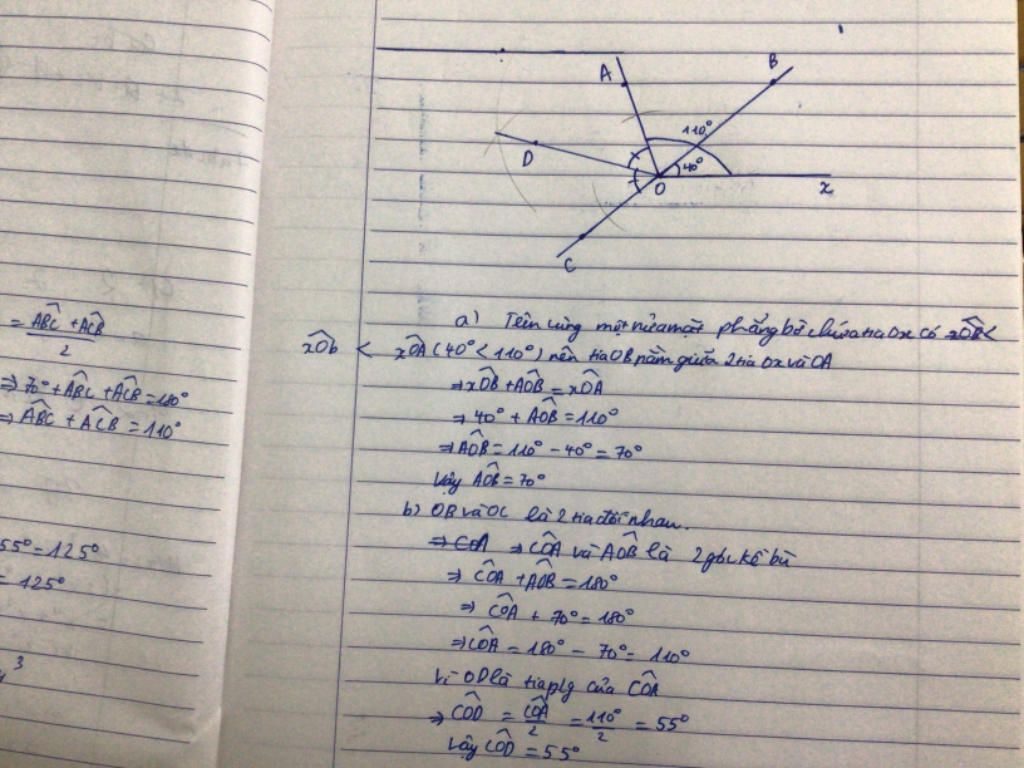 A
B
110°
D
40°
O
x
C
= ABC + ACB
2
⇒ 70° + ABC + ACB = 180°
⇒ ABC + ACB = 110°
55° = 125°
= 125°
3
a) Trên cùng một nửa mặt phẳng bờ chứa tia Ox có xOB <
xOb < xOA (40° < 110°) nên tia OB nằm giữa 2 tia Ox và OA
⇒ xOB + AOB = xOA
⇒ 40° + AOB = 110°
⇒ AOB = 110° - 40° = 70°
Vậy AOB = 70°
b) OB và OC là 2 tia đối nhau.
⇒ COA ⇒ COA và AOB là 2 góc kề bù
⇒ COA + AOB = 180°
⇒ COA + 70° = 180°
⇒ COA = 180° - 70° = 110°
Vì OD là tia plg của COA
⇒ COD = COA/2 = 110°/2 = 55°
Vậy COD = 55°